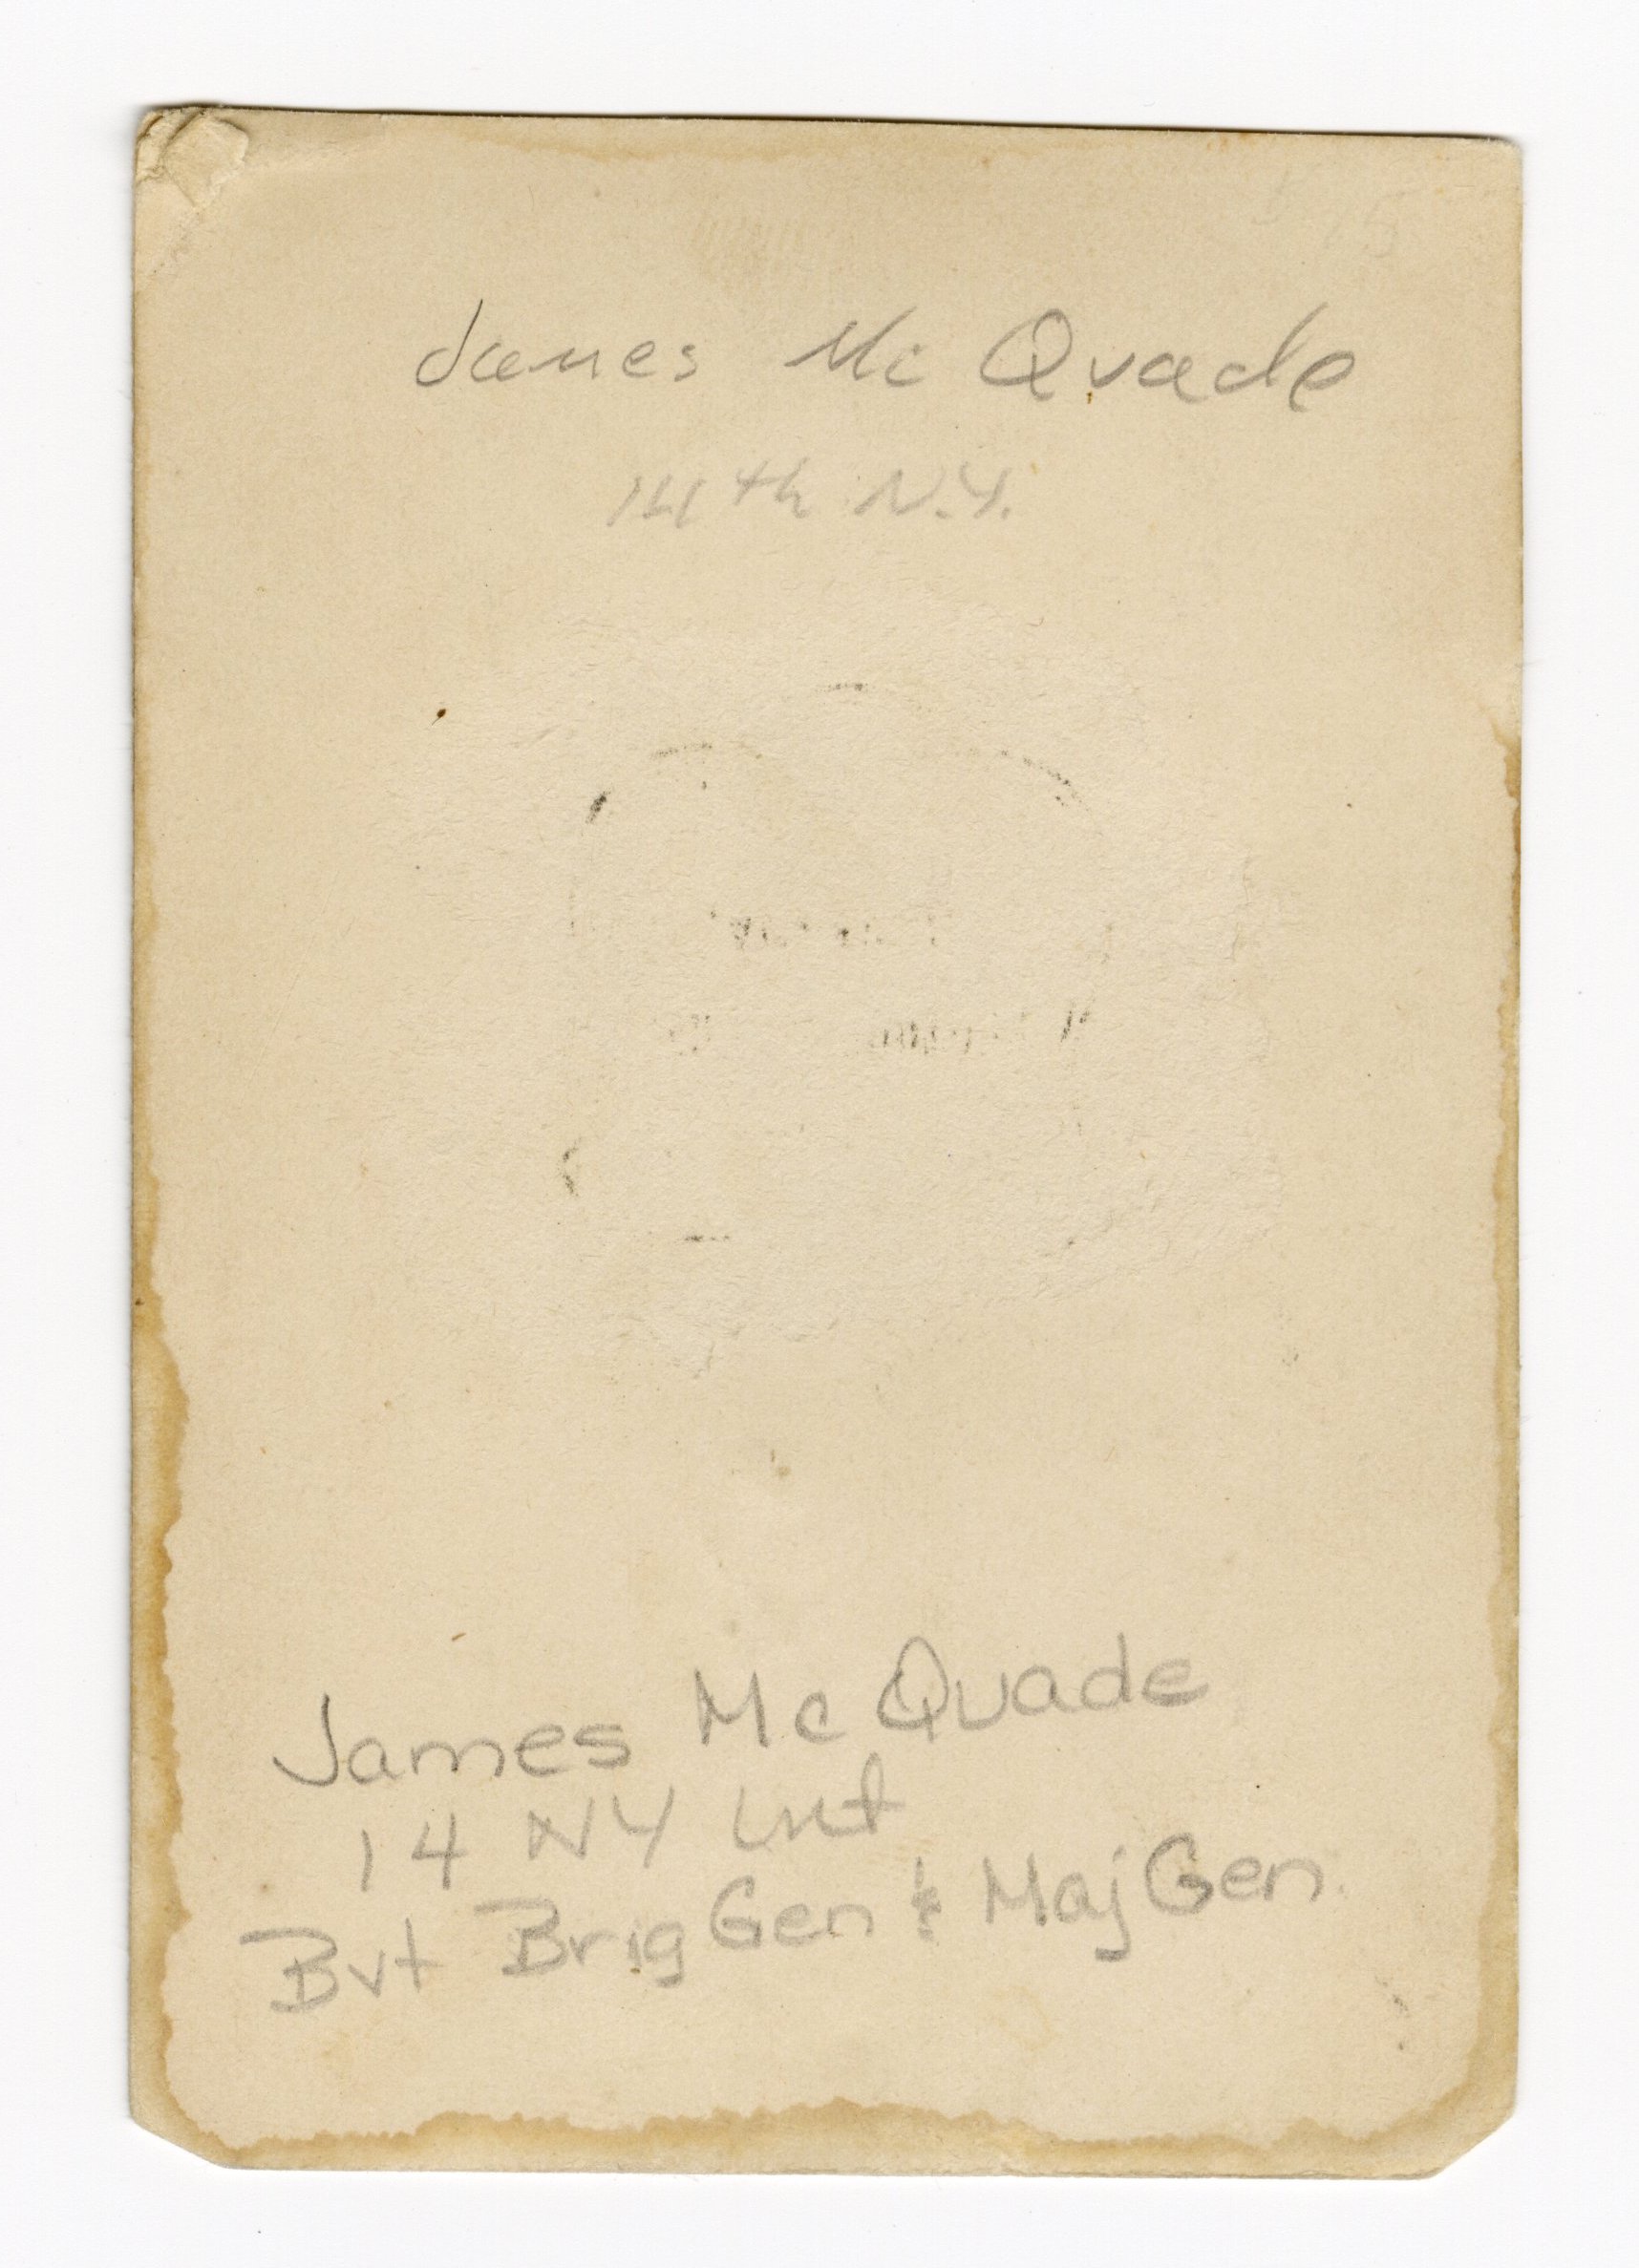 James Mc Quade
14th N.Y.
James Mc Quade
14 NY Inf
Bvt Brig Gen & Maj Gen